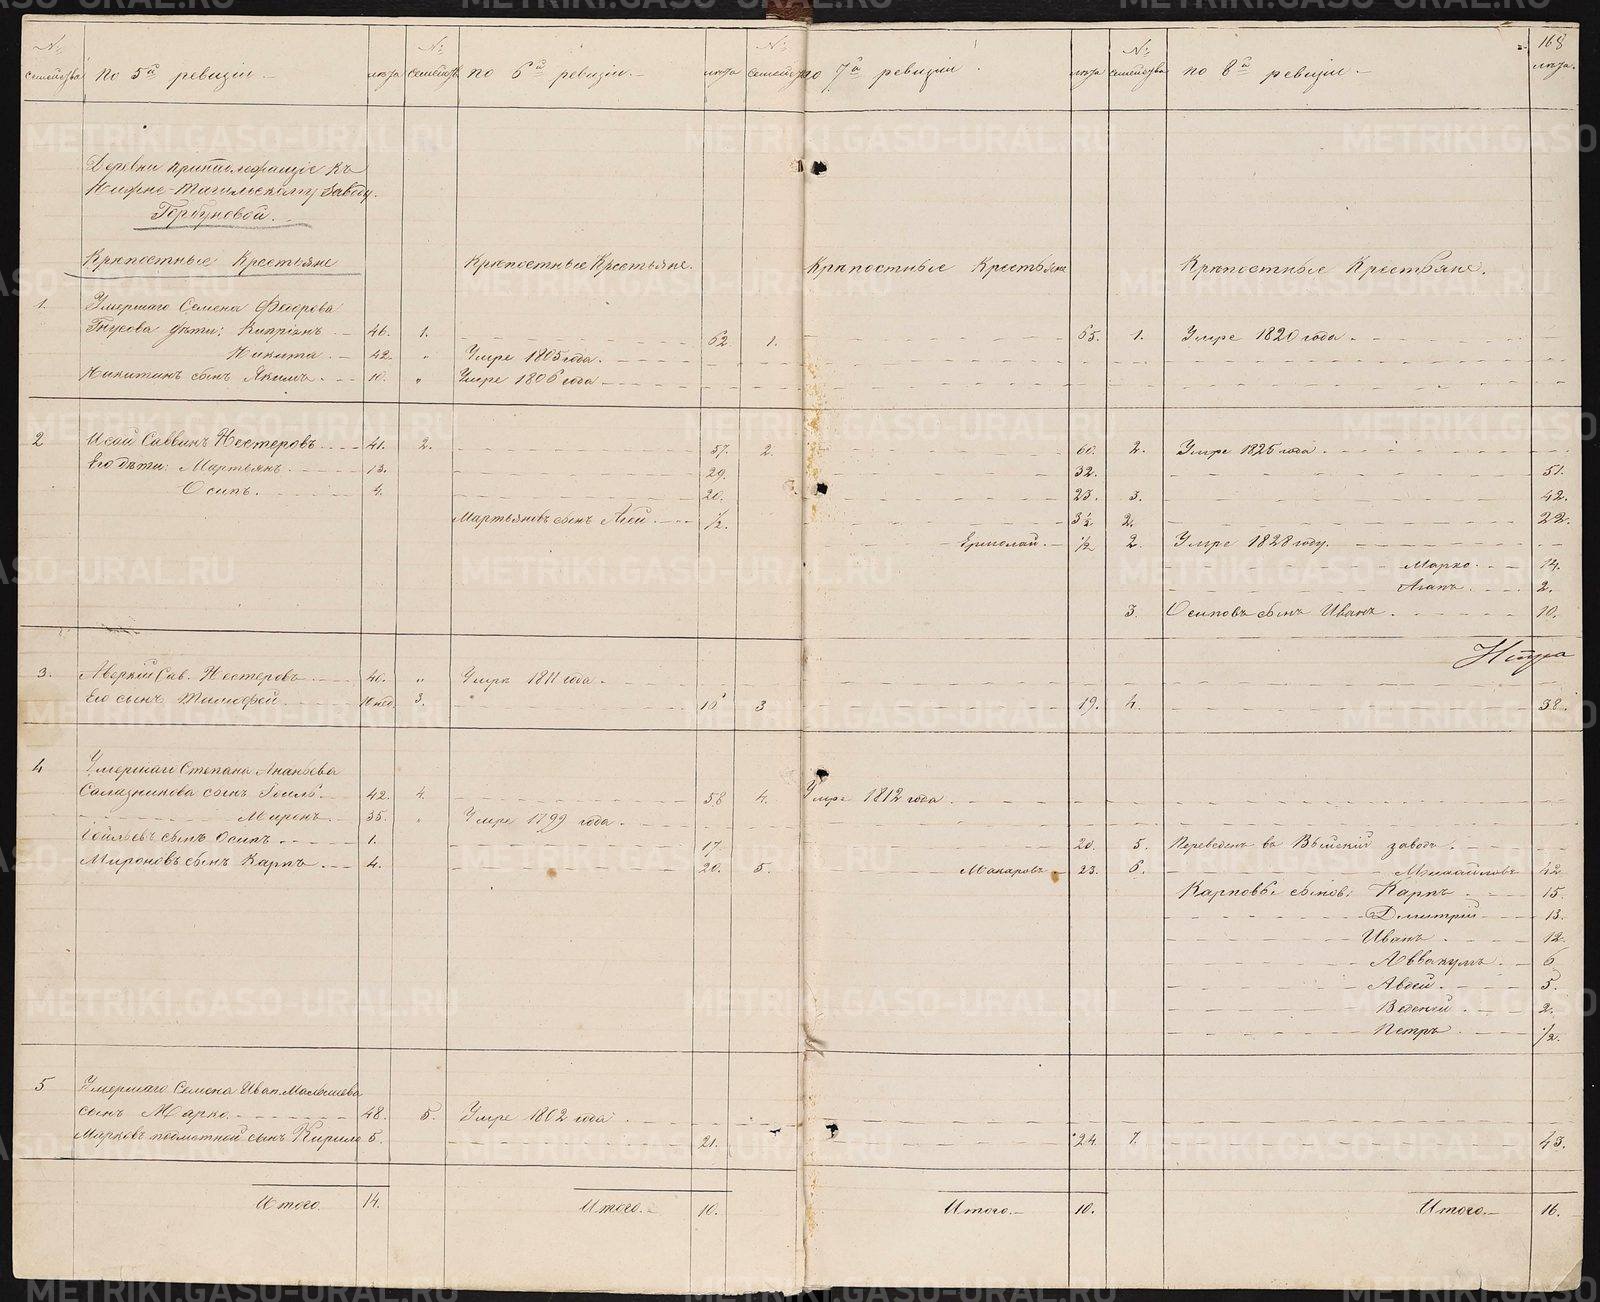 168
№ семейства по 5й ревизіи лѣта № семейств по 6й ревизіи лѣта № семейств по 7й ревизіи лѣта № семейства по 8й ревизіи лѣта.
Деревни принадлежащіе къ
Нижне-Тагильскому заводу.
Горбуновой.
Крѣпостные Крестьяне Крѣпостные Крестьяне. Крѣпостные Крестьяне Крѣпостные Крестьяне.
1. Умершаго Семена Федорова
дѣти: Кипріянъ 46. 1. 62 1. 65. 1. Умре 1820 года
Никита 42. " Умре 1805 года.
Никитинъ сынъ Якимъ. 10. " Умре 1806 года
2 Исай Саввинъ Нестеровъ 41. 2. 57. 2. 60. 2. Умре 1825 года.
Его дѣти: Мартьянъ 13. 29. 32. 51.
Осипъ. 4. 20. 23. 3. 42.
Мартьяновъ сынъ Агей 1/2. 3 1/2 2. 22.
Ермолай. 1/2 2. Умре 1828 году.
Марко. 14.
Агапъ 2.
3. Осиповъ сынъ Иванъ 10.
3. Аверкій Сав. Нестеровъ 40. " Умре 1811 года.
Его сынъ Тимофей 3. 3 19. 4. 38.
4 Умершаго Степана Ананьева
сынъ 42. 4. 58 4. Умре 1812 года
Миронъ 35. Умре 1799 года.
сынъ Осипъ 1. 17. 20. 5. Переведенъ въ Выйскій заводъ
Мироновъ сынъ Карпъ 4. 20. 5. Макаровъ 23. 6. Михайловъ 42
Карповы сыновья: Карпъ 15.
Дмитрій 13.
Иванъ 12.
Аввакумъ 6
Авдей 5.
2.
Петръ 1/2.
5 Умершаго Семена Иван. Малышева
сынъ Марко 48. 5. Умре 1802 года
Марковъ сынъ Кирило 5. 21. 24 7. 45.
Итого. 14. Итого. 10. Итого. 10. Итого. 16.
METRIKI.GASO-URAL.RU